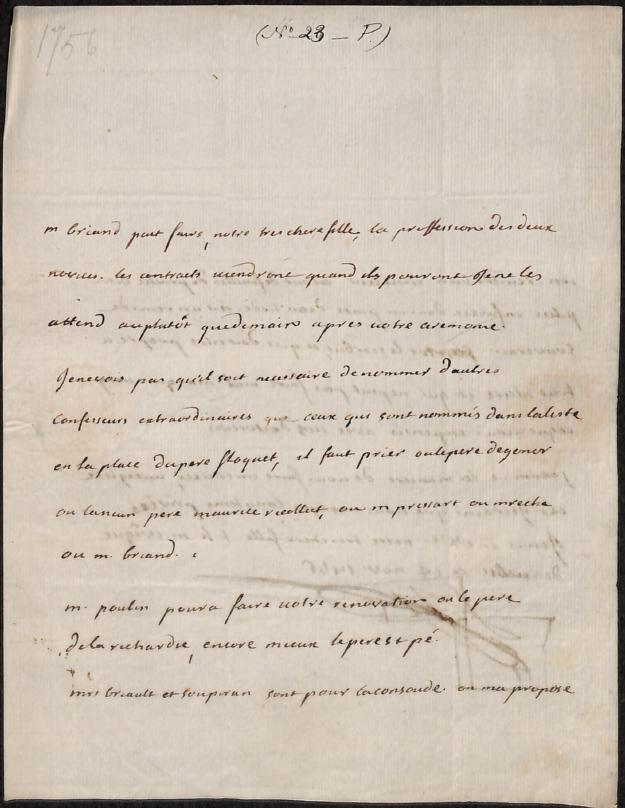 1756
(No 23 — P.)
m briand peut faire, notre tres chere fille, la proffession des deux
novices. les contracts viendront quand ils pourront Je ne les
attend au plutôt que demain apres votre ceremonie.
Je ne vois pas qu'il soit necessaire de nommer d'autres
confesseurs extraordinaires que ceux qui sont nommés dans la liste
en la place du pere floquet, il faut prier ou le pere degonor
ou lancien pere maurice recollect, ou m pressart ou m reche
ou m. briand.
m. poulin poura faire votre renovation ou le pere
de la richardie, encore mieux le pere st pé.
mrs briault et soupiran sont pour la consoude. on ma proposé